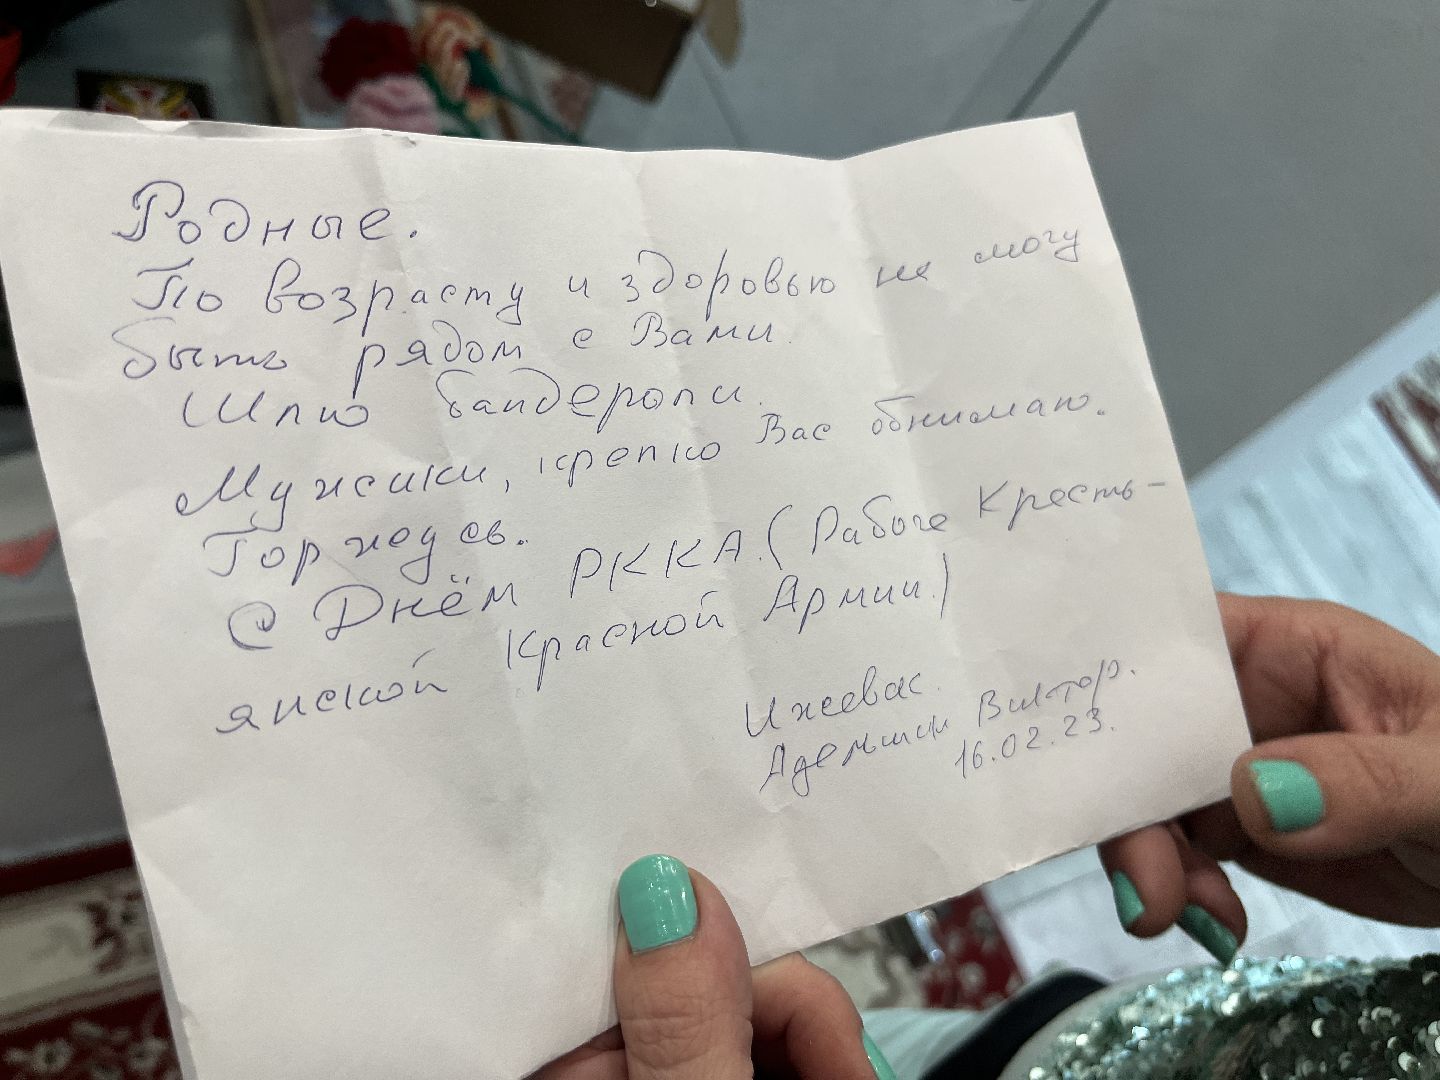 Родные.
По возрасту и здоровью не могу
быть рядом с Вами.
Шлю бандероли.
Мужики, крепко Вас обнимаю.
С Днём РККА. (Рабоче Кресть-
янской Красной Армии.)
Ижевск.
Виктор.
16.02.23.